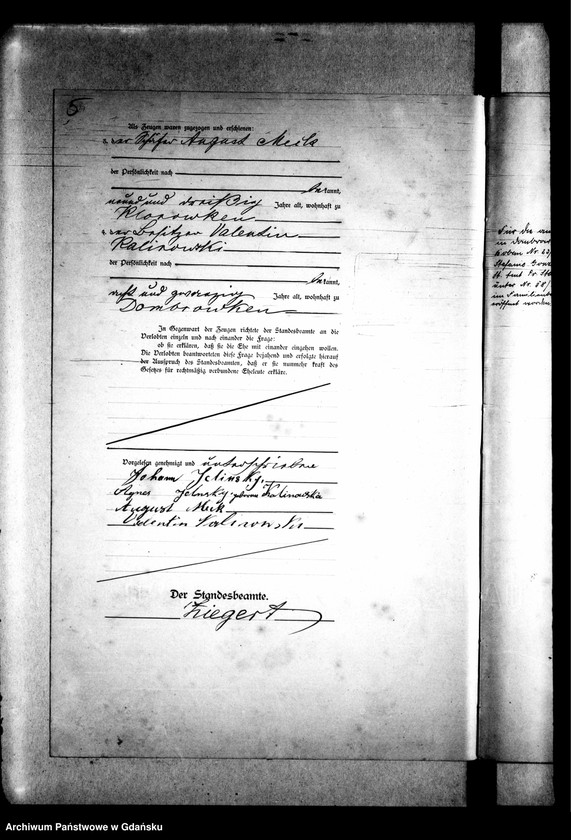 5
Als Zeugen waren zugezogen und erschienen:
3. der August
der Persönlichkeit nach
kannt,
neun und dreißig Jahre alt, wohnhaft zu
4. der Besitzer Valentin
Kalinowski
der Persönlichkeit nach
kannt,
acht und zwanzig Jahre alt, wohnhaft zu
Dombrowken
In Gegenwart der Zeugen richtete der Standesbeamte an die
Verlobten einzeln und nach einander die Frage:
ob sie erklären, daß sie die Ehe mit einander eingehen wollen.
Die Verlobten beantworteten diese Frage bejahend und erfolgte hierauf
der Ausspruch des Standesbeamten, daß er sie nunmehr kraft des
Gesetzes für rechtmäßig verbundene Eheleute erkläre.
Vorgelesen genehmigt und unterschrieben
Johann Jelinsky
Agnes Jelinsky geborene Kalinowska
August
Valentin Kalinowski
Der Standesbeamte.
Ziegert
Für die
in
Nr.
Stefanie
Nr.
unter Nr.
im
eröffnet worden
Archiwum Państwowe w Gdańsku